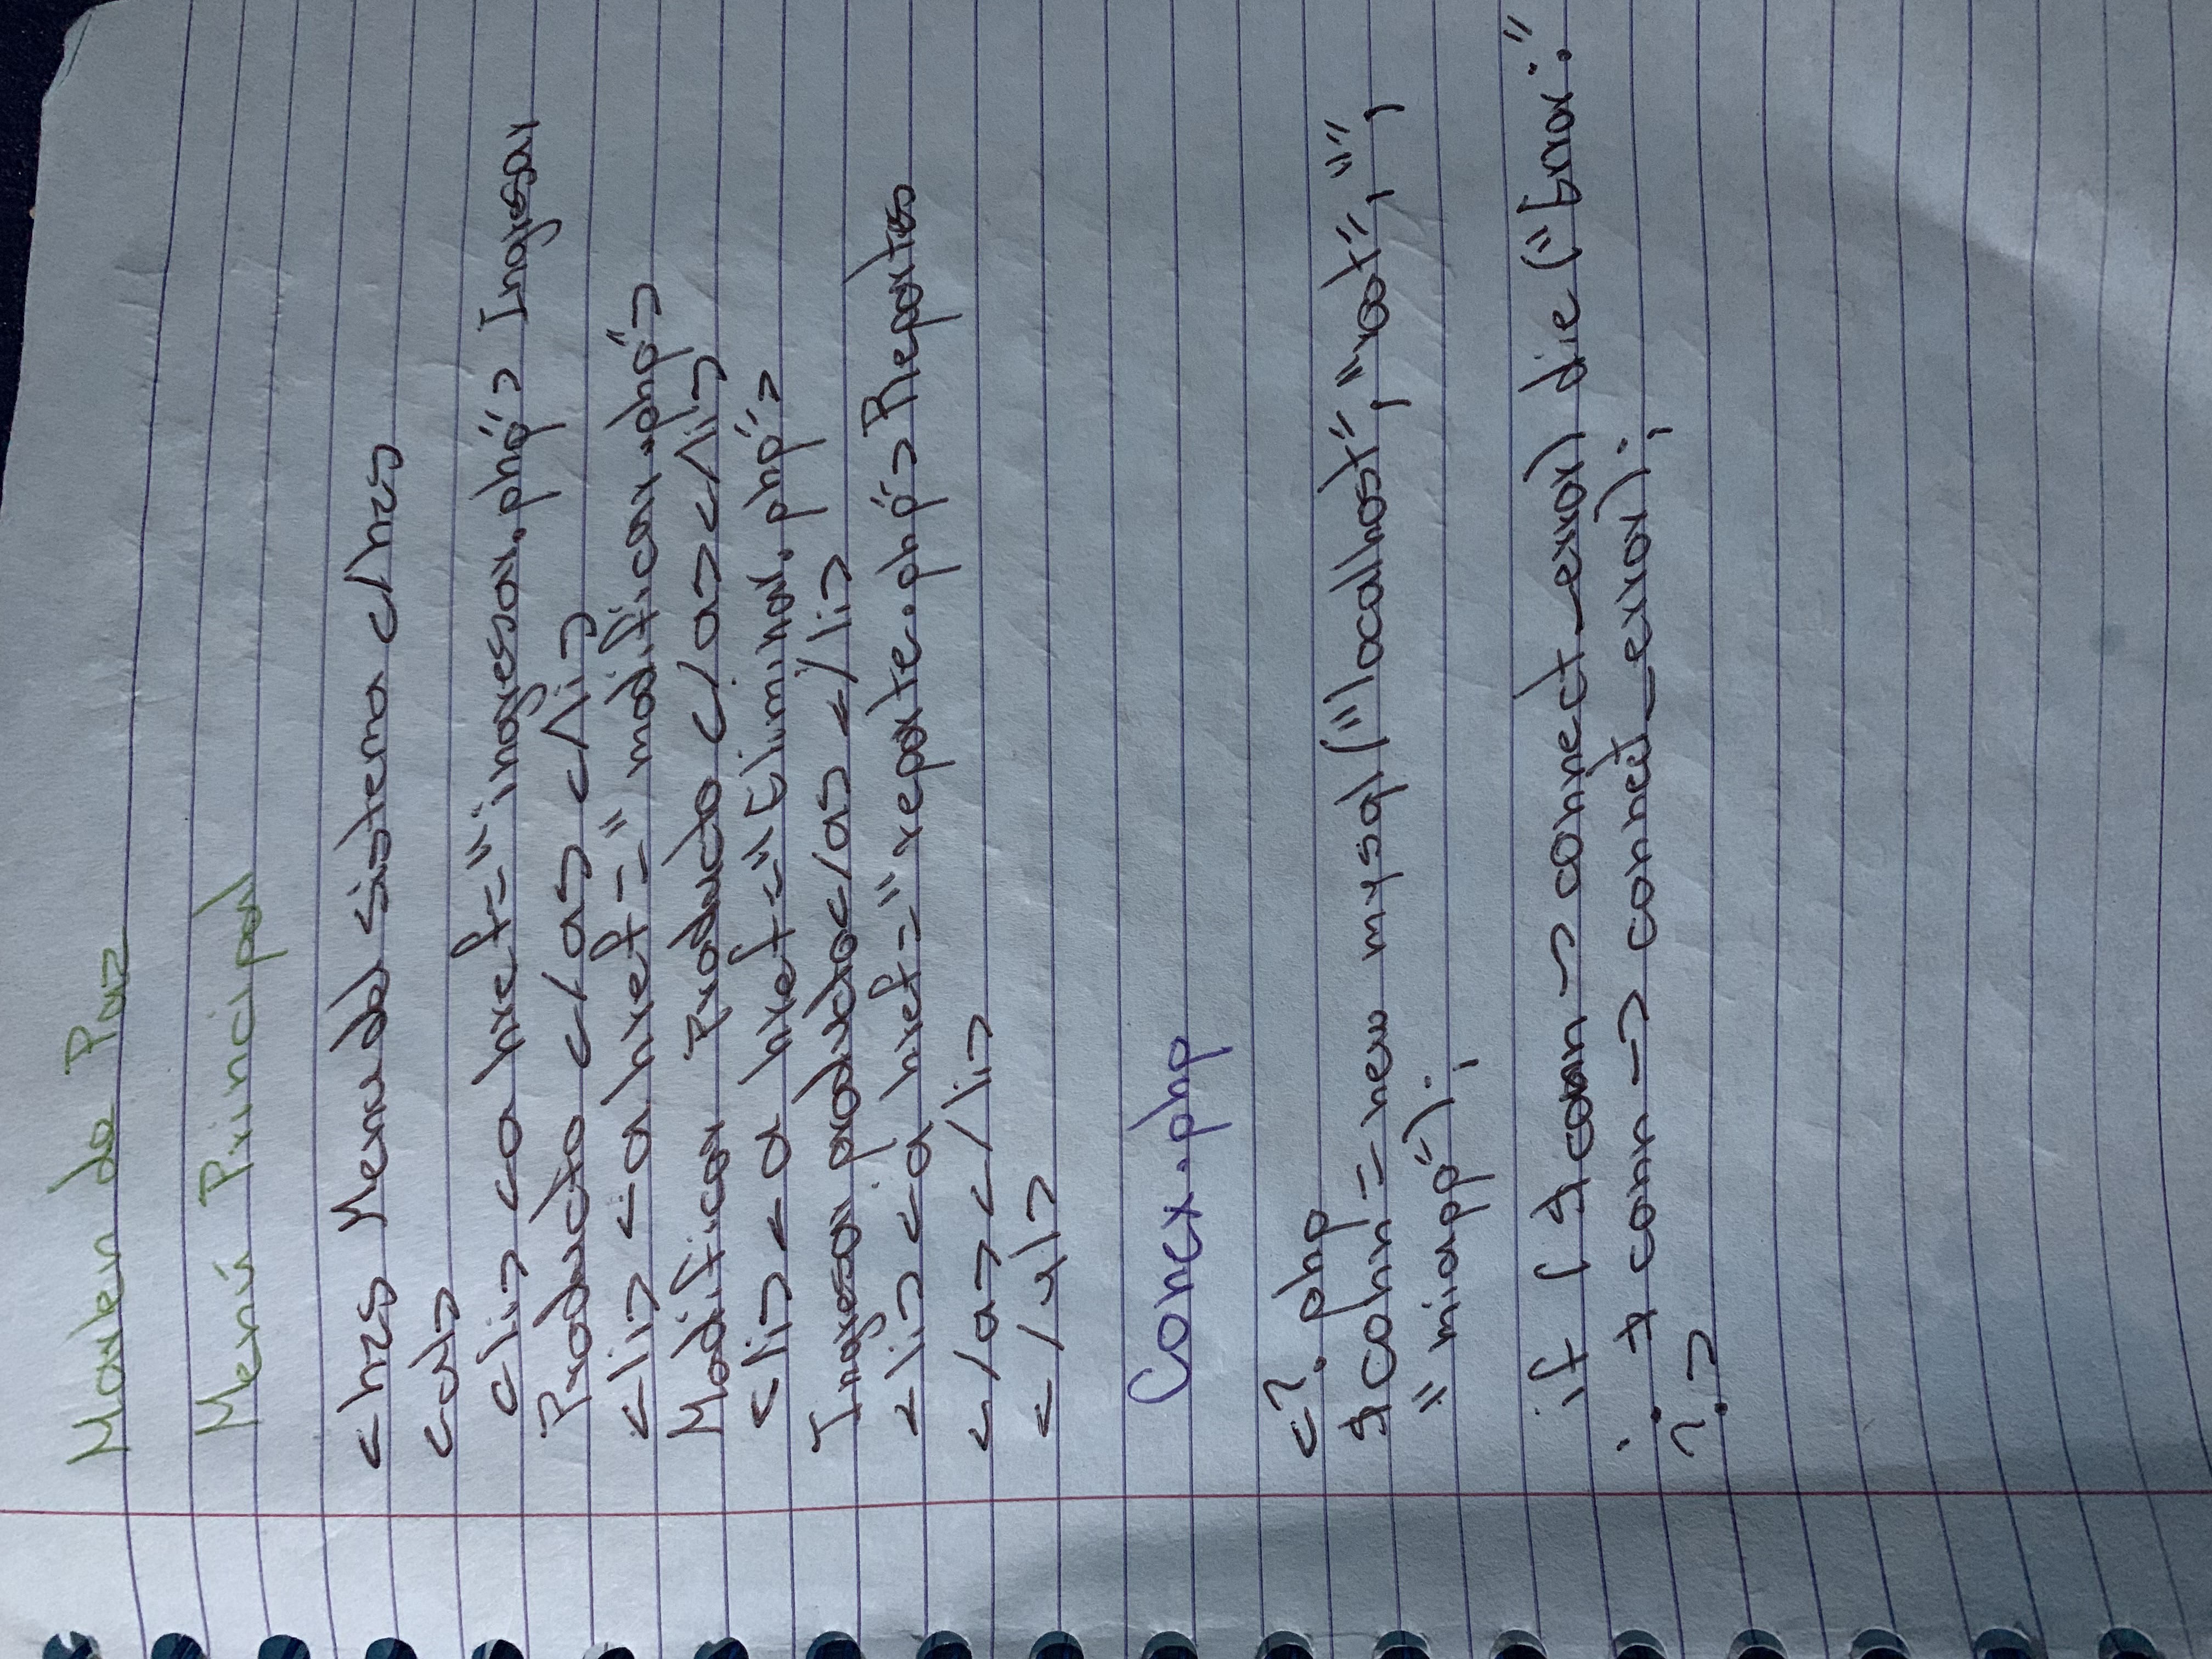 Marlen de Paz
Menú Principal
<h2> Menu del sistema </h2>
<ul>
<li> <a href="ingresar.php"> Ingresar
Producto </a> </li>
<li> <a href="modificar.php">
Modificar Producto </a> </li>
<li> <a href="Eliminar.php">
Ingresar producto</a> </li>
<li> <a href="reporte.php"> Reportes
</a> </li>
</ul>
Conex.php
<?php
$conn = new mysql("localhost", "root", "",
"miapp");
if ($conn -> connect_error) die ("Error:"
. $conn -> connect_error);
?>